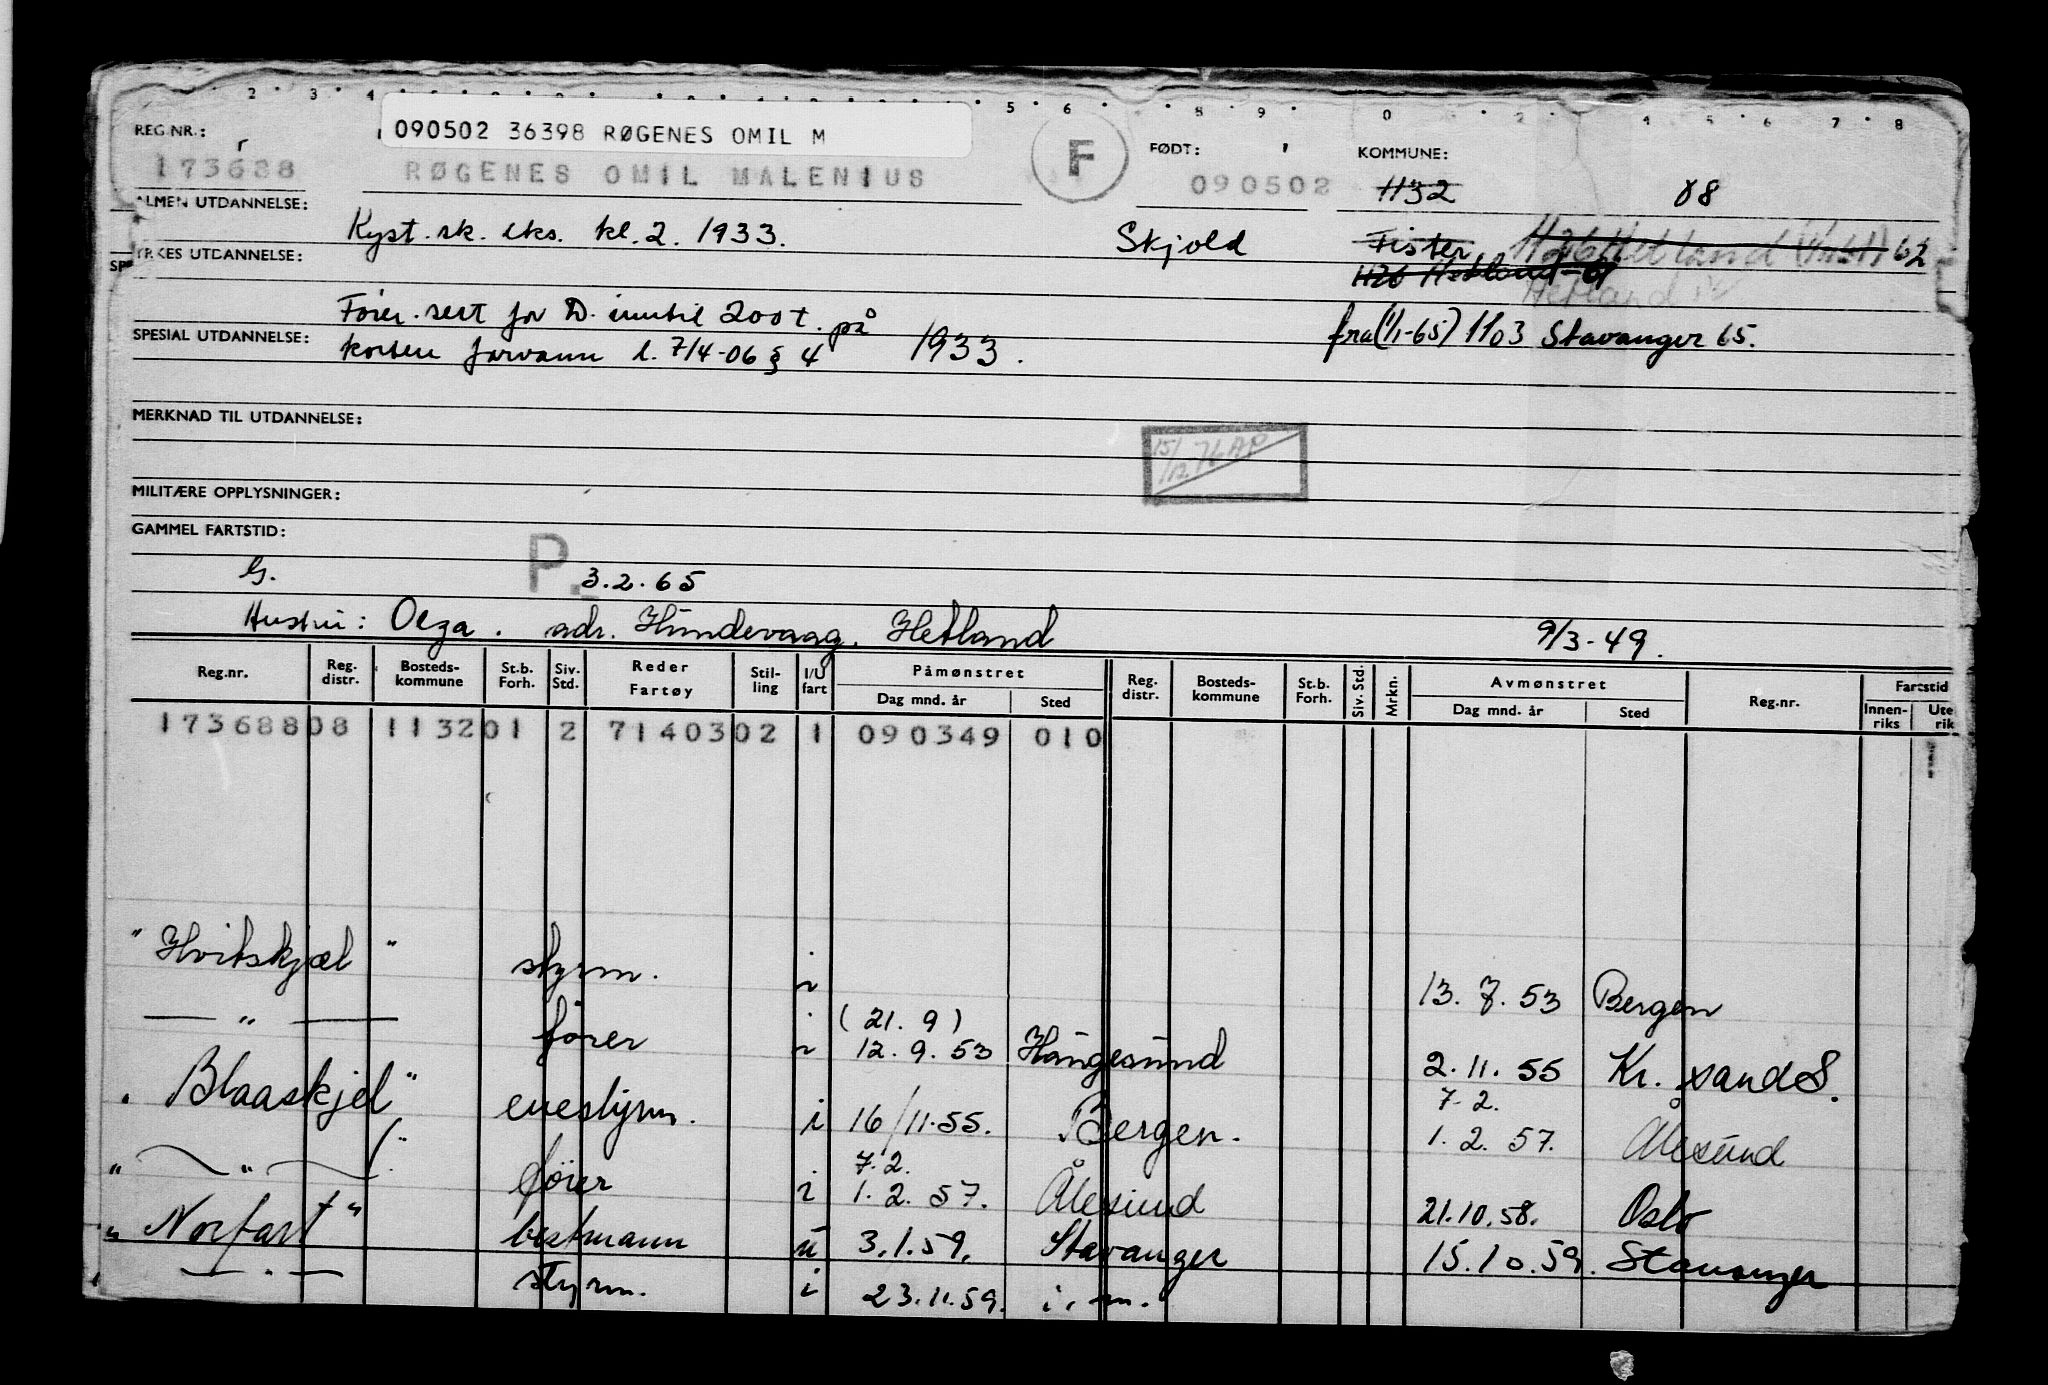 2 3 4 5 6 8 9 0 2 4 5 6 7 8
REG.NR.: 090502 36398 RØGENES OMIL M FØDT: KOMMUNE:
173688 RØGENES OMIL MALENIUS F 090502 1132 88
ALMEN UTDANNELSE: Kyst.sk. eks. kl. 2. 1933. Skjold Fister 1126 Hetland 62
YRKES UTDANNELSE: 1126 Hetland - 61
Hetland
Fører.sert for D. inntil 200 t. på
SPESIAL UTDANNELSE: kortere farvann l. 7/4-06 § 4 1933. fra (1/1-65) 1103 Stavanger 65.
MERKNAD TIL UTDANNELSE:
15/12 76 AP
MILITÆRE OPPLYSNINGER:
GAMMEL FARTSTID:
G. P. 3.2.65
Hustru: Olga. adr. Hundevaag. Hetland 9/3-49.
Reg.nr. Reg. distr. Bosteds-kommune St.b. Forh. Siv. Std. Reder Fartøy Stil-ling I/U fart Påmønstret Dag mnd. år Sted Reg. distr. Bosteds-kommune St.b. Forh. Siv. Std. Mrkn. Avmønstret Dag mnd. år Sted Reg.nr. Fartstid Innen-riks Ute rik
173688 08 1132 01 2 71403 02 1 090349 010
"Hvitskjæl" styrm. i 13.7.53 Bergen
— " — fører i (21.9) 12.9.53 Haugesund 2.11.55 Kr.sand S.
"Blaaskjel" enestyrm. i 16/11.55. Bergen. 7.2. 1.2.57. Ålesund
" — " — " fører i 7.2. 1.2.57. Ålesund 21.10.58. Oslo
"Norfart" bestmann u 3.1.59. Stavanger 15.10.59. Stavanger
— " — styrm. i 23.11.59. i. m.